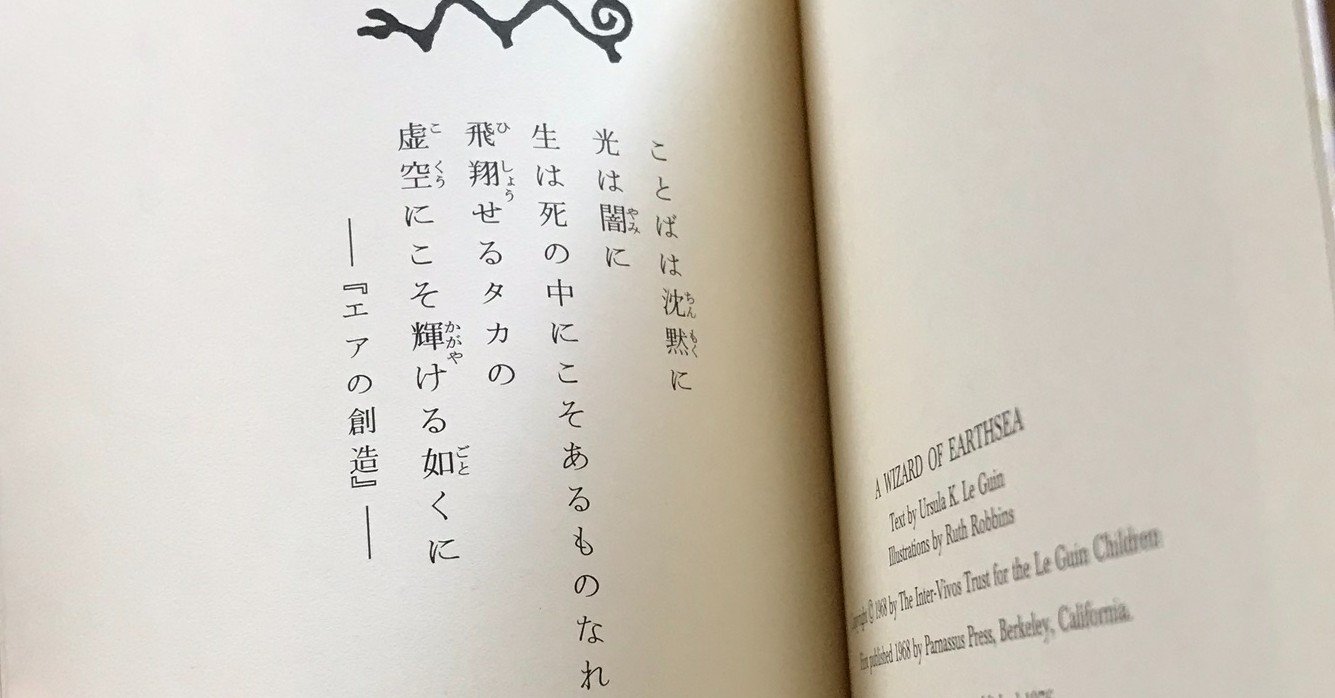 ことばは沈黙に
光は闇に
生は死の中にこそあるものなれ
飛翔せるタカの
虚空にこそ輝ける如くに
――『エアの創造』――
A WIZARD OF EARTHSEA
Text by Ursula K. Le Guin
Illustrations by Ruth Robbins
© 1968 by The Inter-Vivos Trust for the Le Guin Children
First published 1968 by Parnassus Press, Berkeley, California.